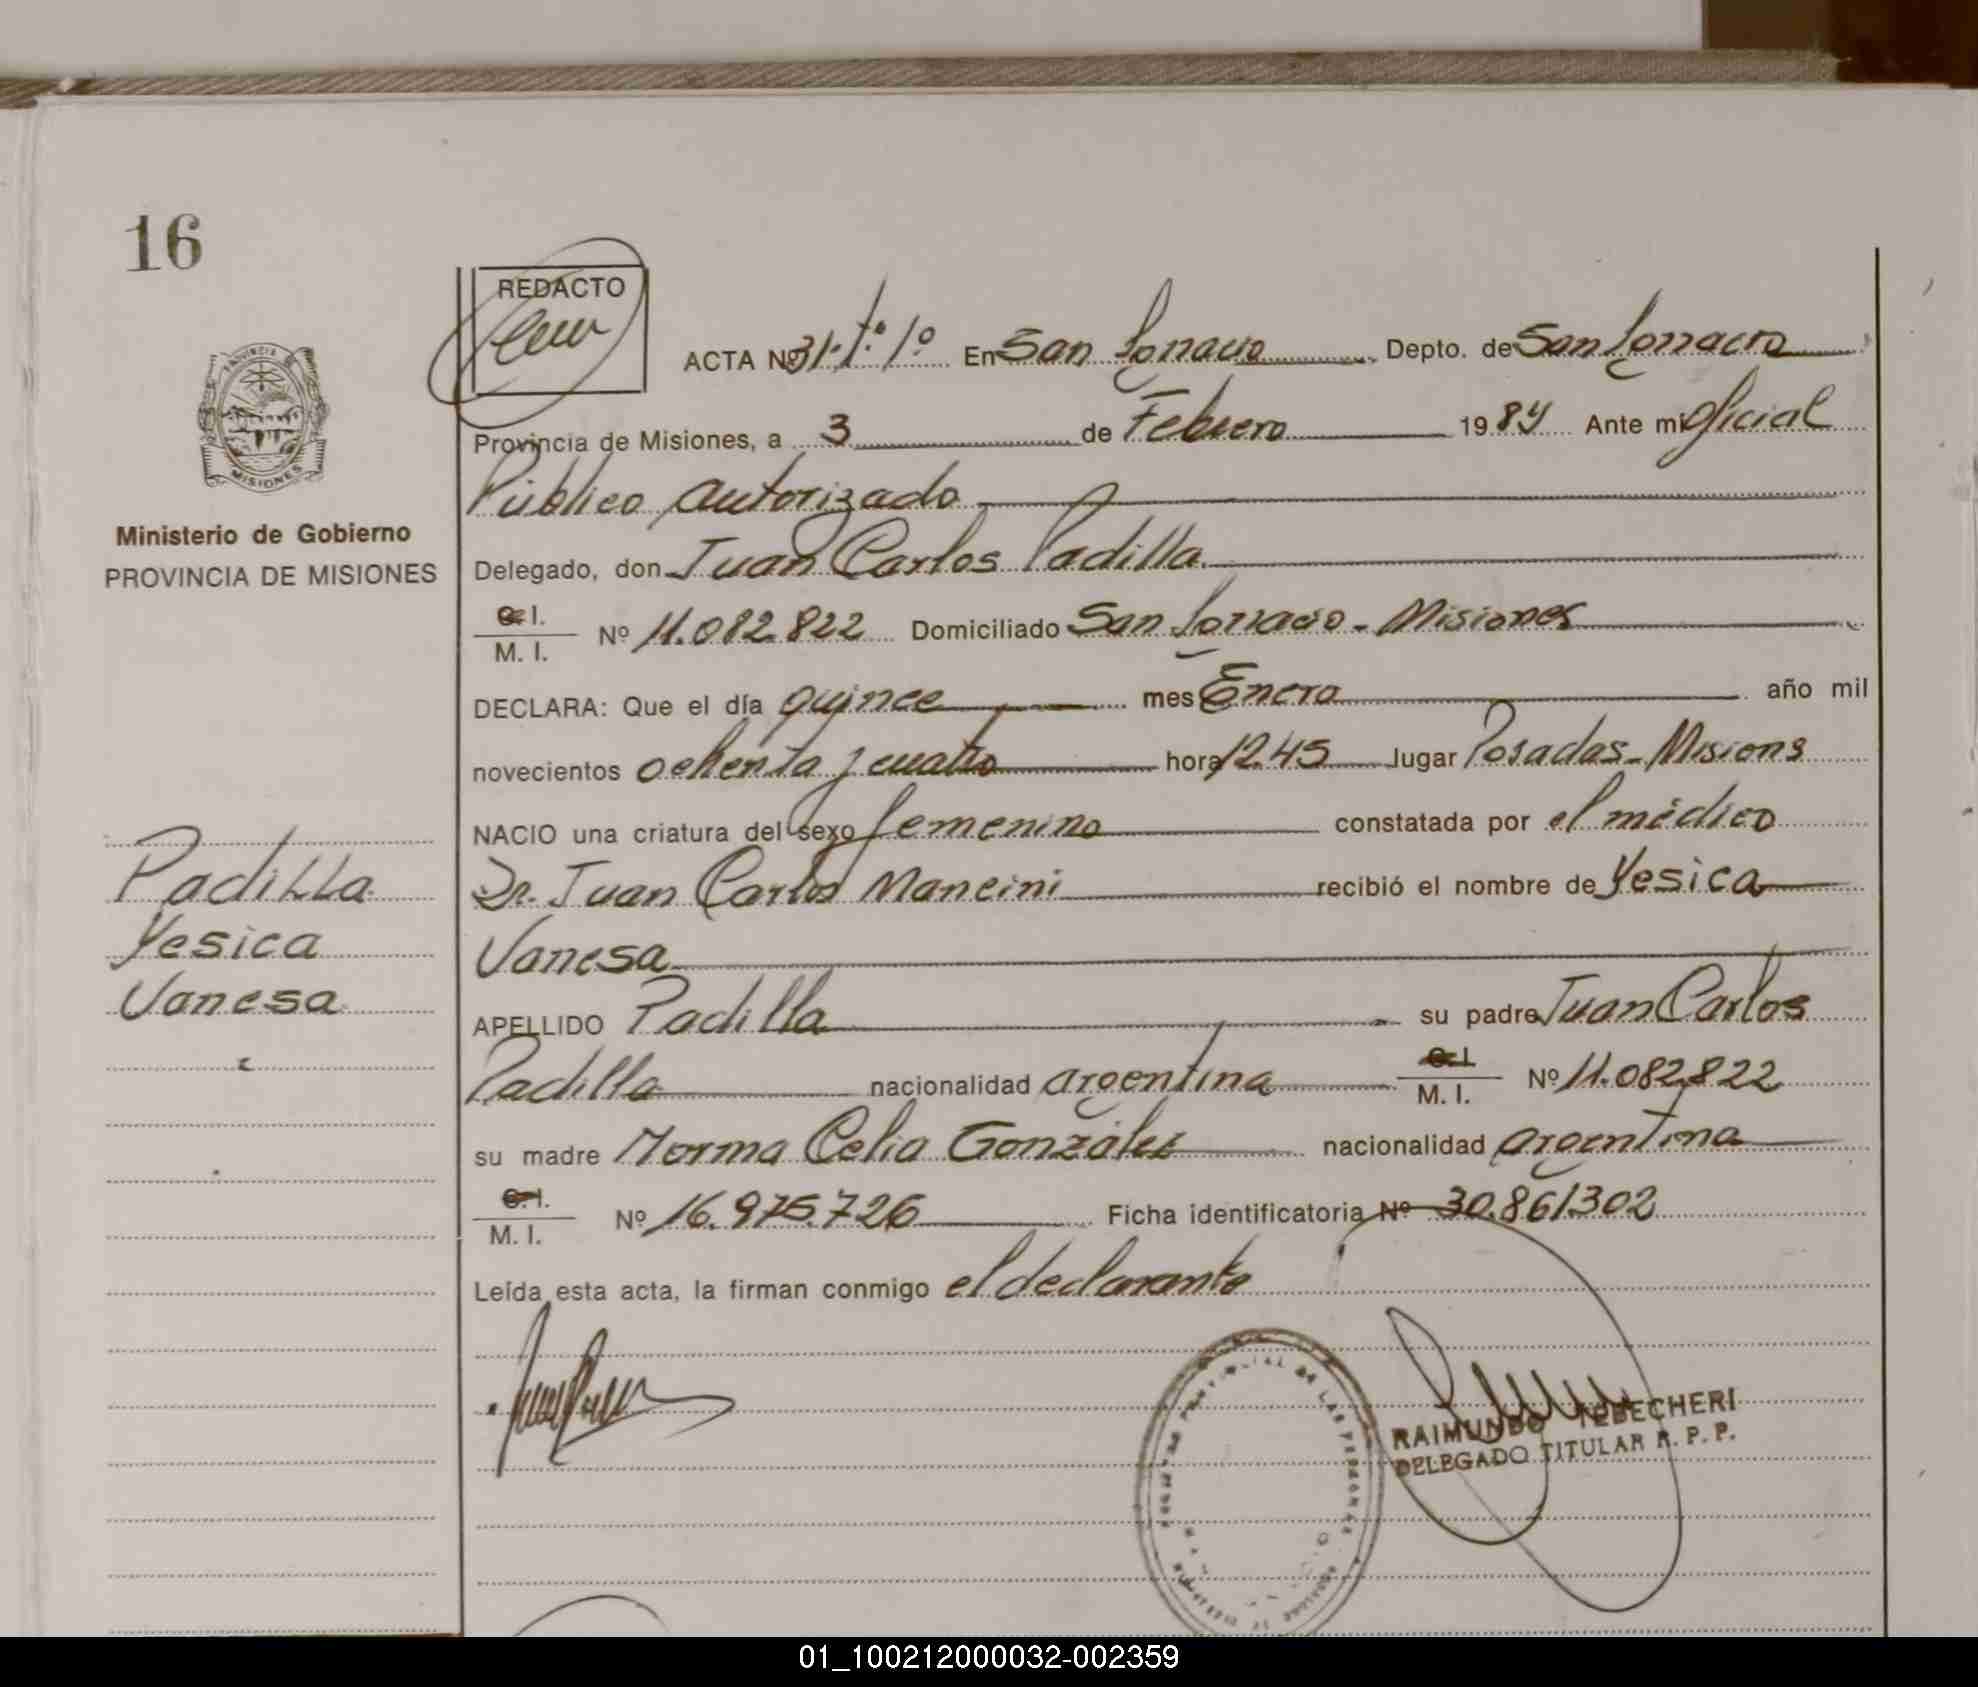 16
REDACTO
ACTA Nº 31-Tº 1º En San Ignacio Depto. de San Ignacio
Provincia de Misiones, a 3 de Febrero 1984 Ante mi Oficial
Público autorizado
PROVINCIA
MISIONES
Ministerio de Gobierno
PROVINCIA DE MISIONES
Delegado, don Juan Carlos Padilla
C.I.
M. I. Nº 11.082.822 Domiciliado San Ignacio - Misiones
DECLARA: Que el día quince mes Enero año mil
novecientos ochenta y cuatro hora 12.45 lugar Posadas - Misions
NACIO una criatura del sexo femenino constatada por el médico
Dr. Juan Carlos Mancini recibió el nombre de Yesica
Vanesa
Padilla
Yesica
Vanesa
APELLIDO Padilla su padre Juan Carlos
Padilla nacionalidad argentina C.I. M. I. Nº 11.082.822
su madre Norma Celia González nacionalidad argentina
C.I.
M. I. Nº 16.975.726 Ficha identificatoria Nº 30.861302
Leída esta acta, la firman conmigo el declarante
DE LAS PERSONAS
RAIMUNDO TEBECHERI
DELEGADO TITULAR R. P. P.
01_100212000032-002359